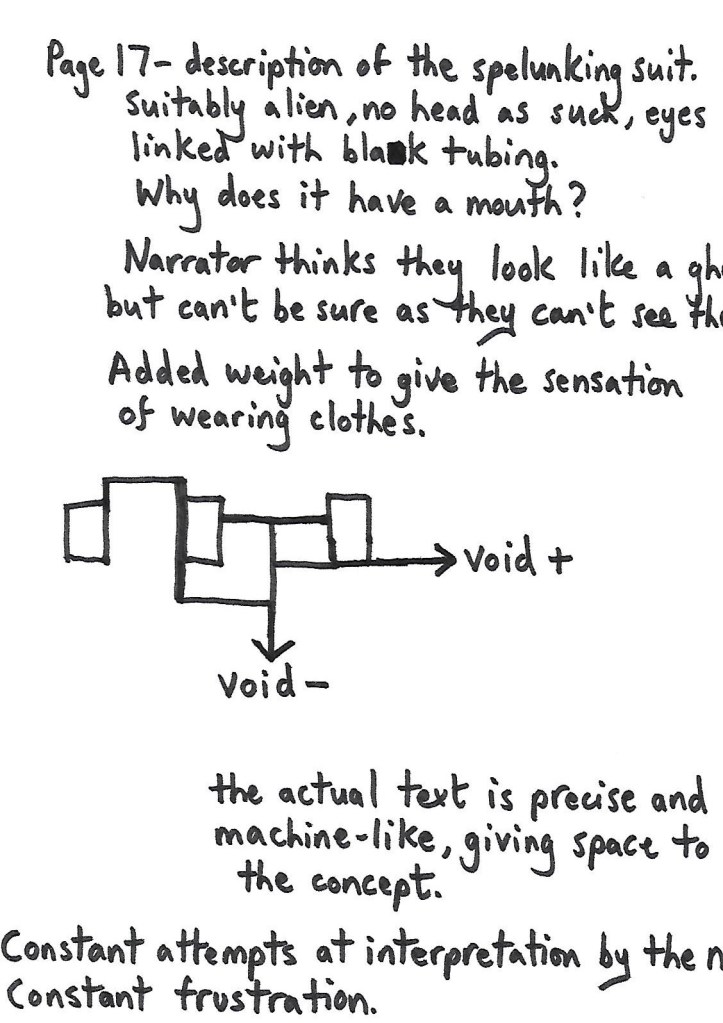 Page 17- description of the spelunking suit.
Suitably alien, no head as such, eyes
linked with black tubing.
Why does it have a mouth?
Narrator thinks they look like a
but can't be sure as they can't see
Added weight to give the sensation
of wearing clothes.
void +
void -
the actual text is precise and
machine-like, giving space to
the concept.
Constant attempts at interpretation by the
Constant frustration.